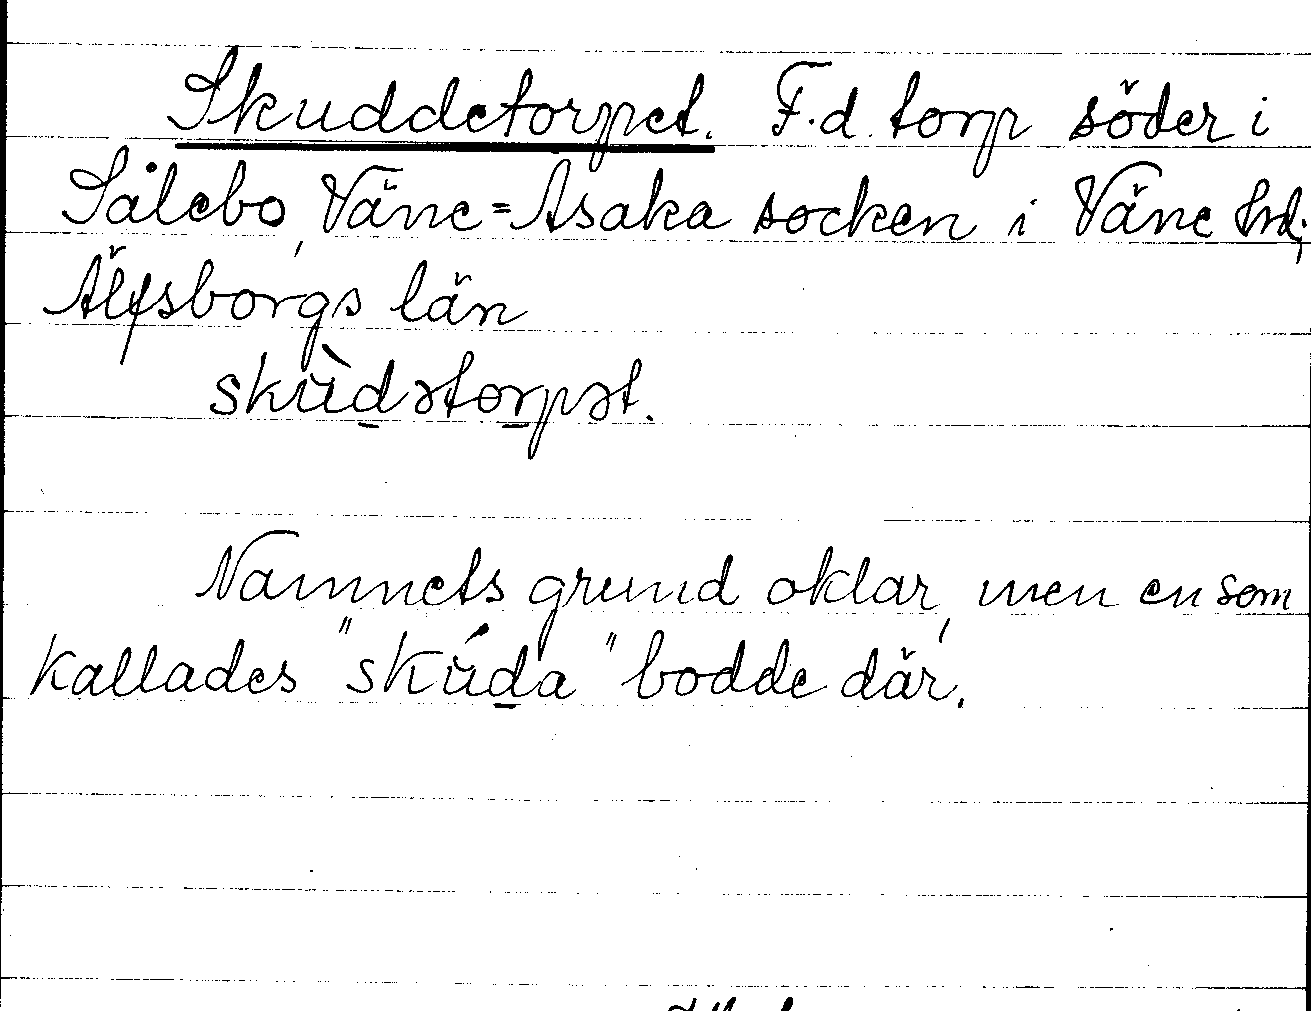 Skuddetorpet. F.d. torp söder i
Sålebo, Väne=Åsaka socken i Väne hrd;
Älfsborgs län
skùdətorpət.
Namnets grund oklar, men en som
kallades "skúda" bodde där.